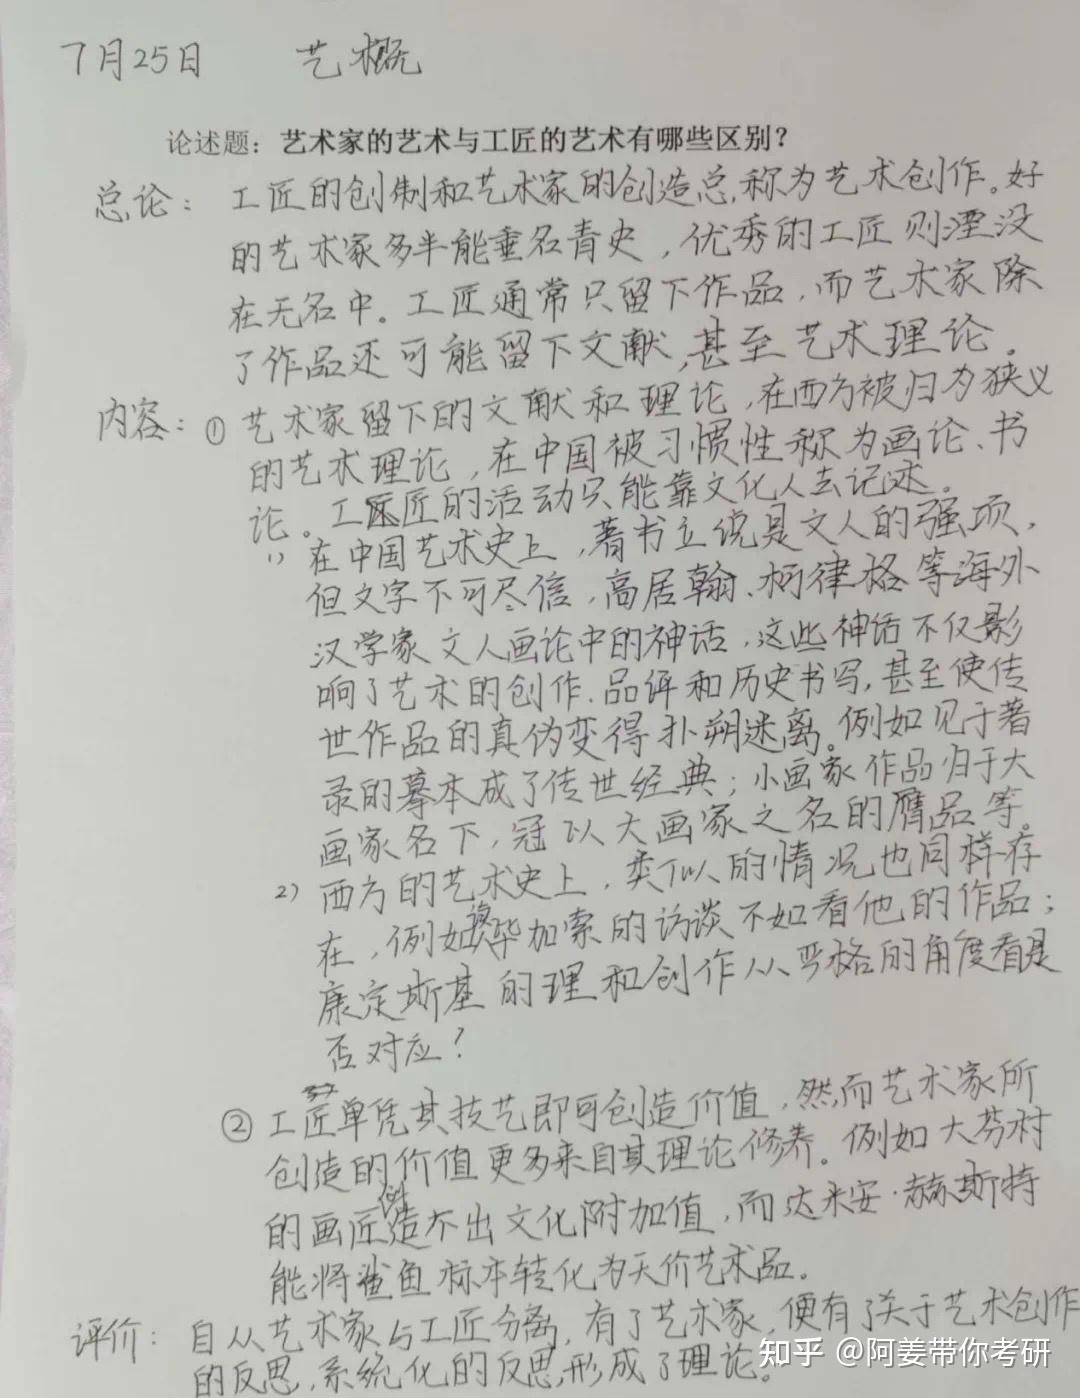 7月25日 艺概
论述题：艺术家的艺术与工匠的艺术有哪些区别？
总论：工匠的创制和艺术家的创造总称为艺术创作。好
的艺术家多半能垂名青史，优秀的工匠则湮没
在无名中。工匠通常只留下作品，而艺术家除
了作品还可能留下文献，甚至艺术理论。
内容：①艺术家留下的文献和理论，在西方被归为狭义
的艺术理论，在中国被习惯性称为画论、书
论。工匠的活动只能靠文化人去记述。
1）在中国艺术史上，著书立说是文人的强项，
但文字不可尽信，高居翰、柯律格等海外
汉学家文人画论中的神话，这些神话不仅影
响了艺术的创作、品评和历史书写，甚至使传
世作品的真伪变得扑朔迷离。例如见于著
录的摹本成了传世经典；小画家作品归于大
画家名下，冠以大画家之名的赝品等。
2）西方的艺术史上，类似的情况也同样存
在，例如读毕加索的访谈不如看他的作品；
康定斯基的理和创作从严格的角度看是
否对应？
②工匠单凭其技艺即可创造价值，然而艺术家所
创造的价值更多来自其理论修养。例如大芬村
的画匠创造不出文化附加值，而达米安·赫斯特
能将鲨鱼标本转化为天价艺术品。
评价：自从艺术家与工匠分离，有了艺术家，便有了关于艺术创作
的反思，系统化的反思形成了理论。
知乎 @阿姜带你考研